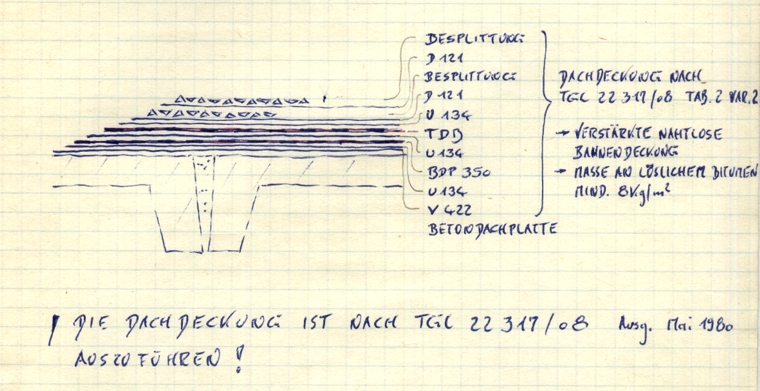 BESPLITTUNG
D 121
BESPLITTUNG
D 121
U 134
TDD
U 134
BDP 350
U 134
V 422
BETONDACHPLATTE
DACHDECKUNG NACH
TGL 22 317/08 TAB. 2 VAR. 2
→ VERSTÄRKTE NAHTLOSE
BAHNENDECKUNG
→ MASSE AN LÖSLICHEM BITUMEN
MIND. 8 Kg/m²
! DIE DACHDECKUNG IST NACH TGL 22 317/08 Ausg. Mai 1980
AUSZUFÜHREN !